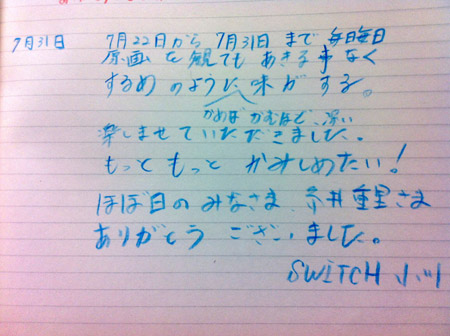 7月31日 7月22日から 7月31日 まで 毎日毎日
原画を観てもあきる事なく
するめのように味がする。
かめば かむほど、深い
楽しませていただきました。
もっと もっと かみしめたい!
ほぼ日の みなさま、糸井重里さま
ありがとう ございました。
SWITCH 小川